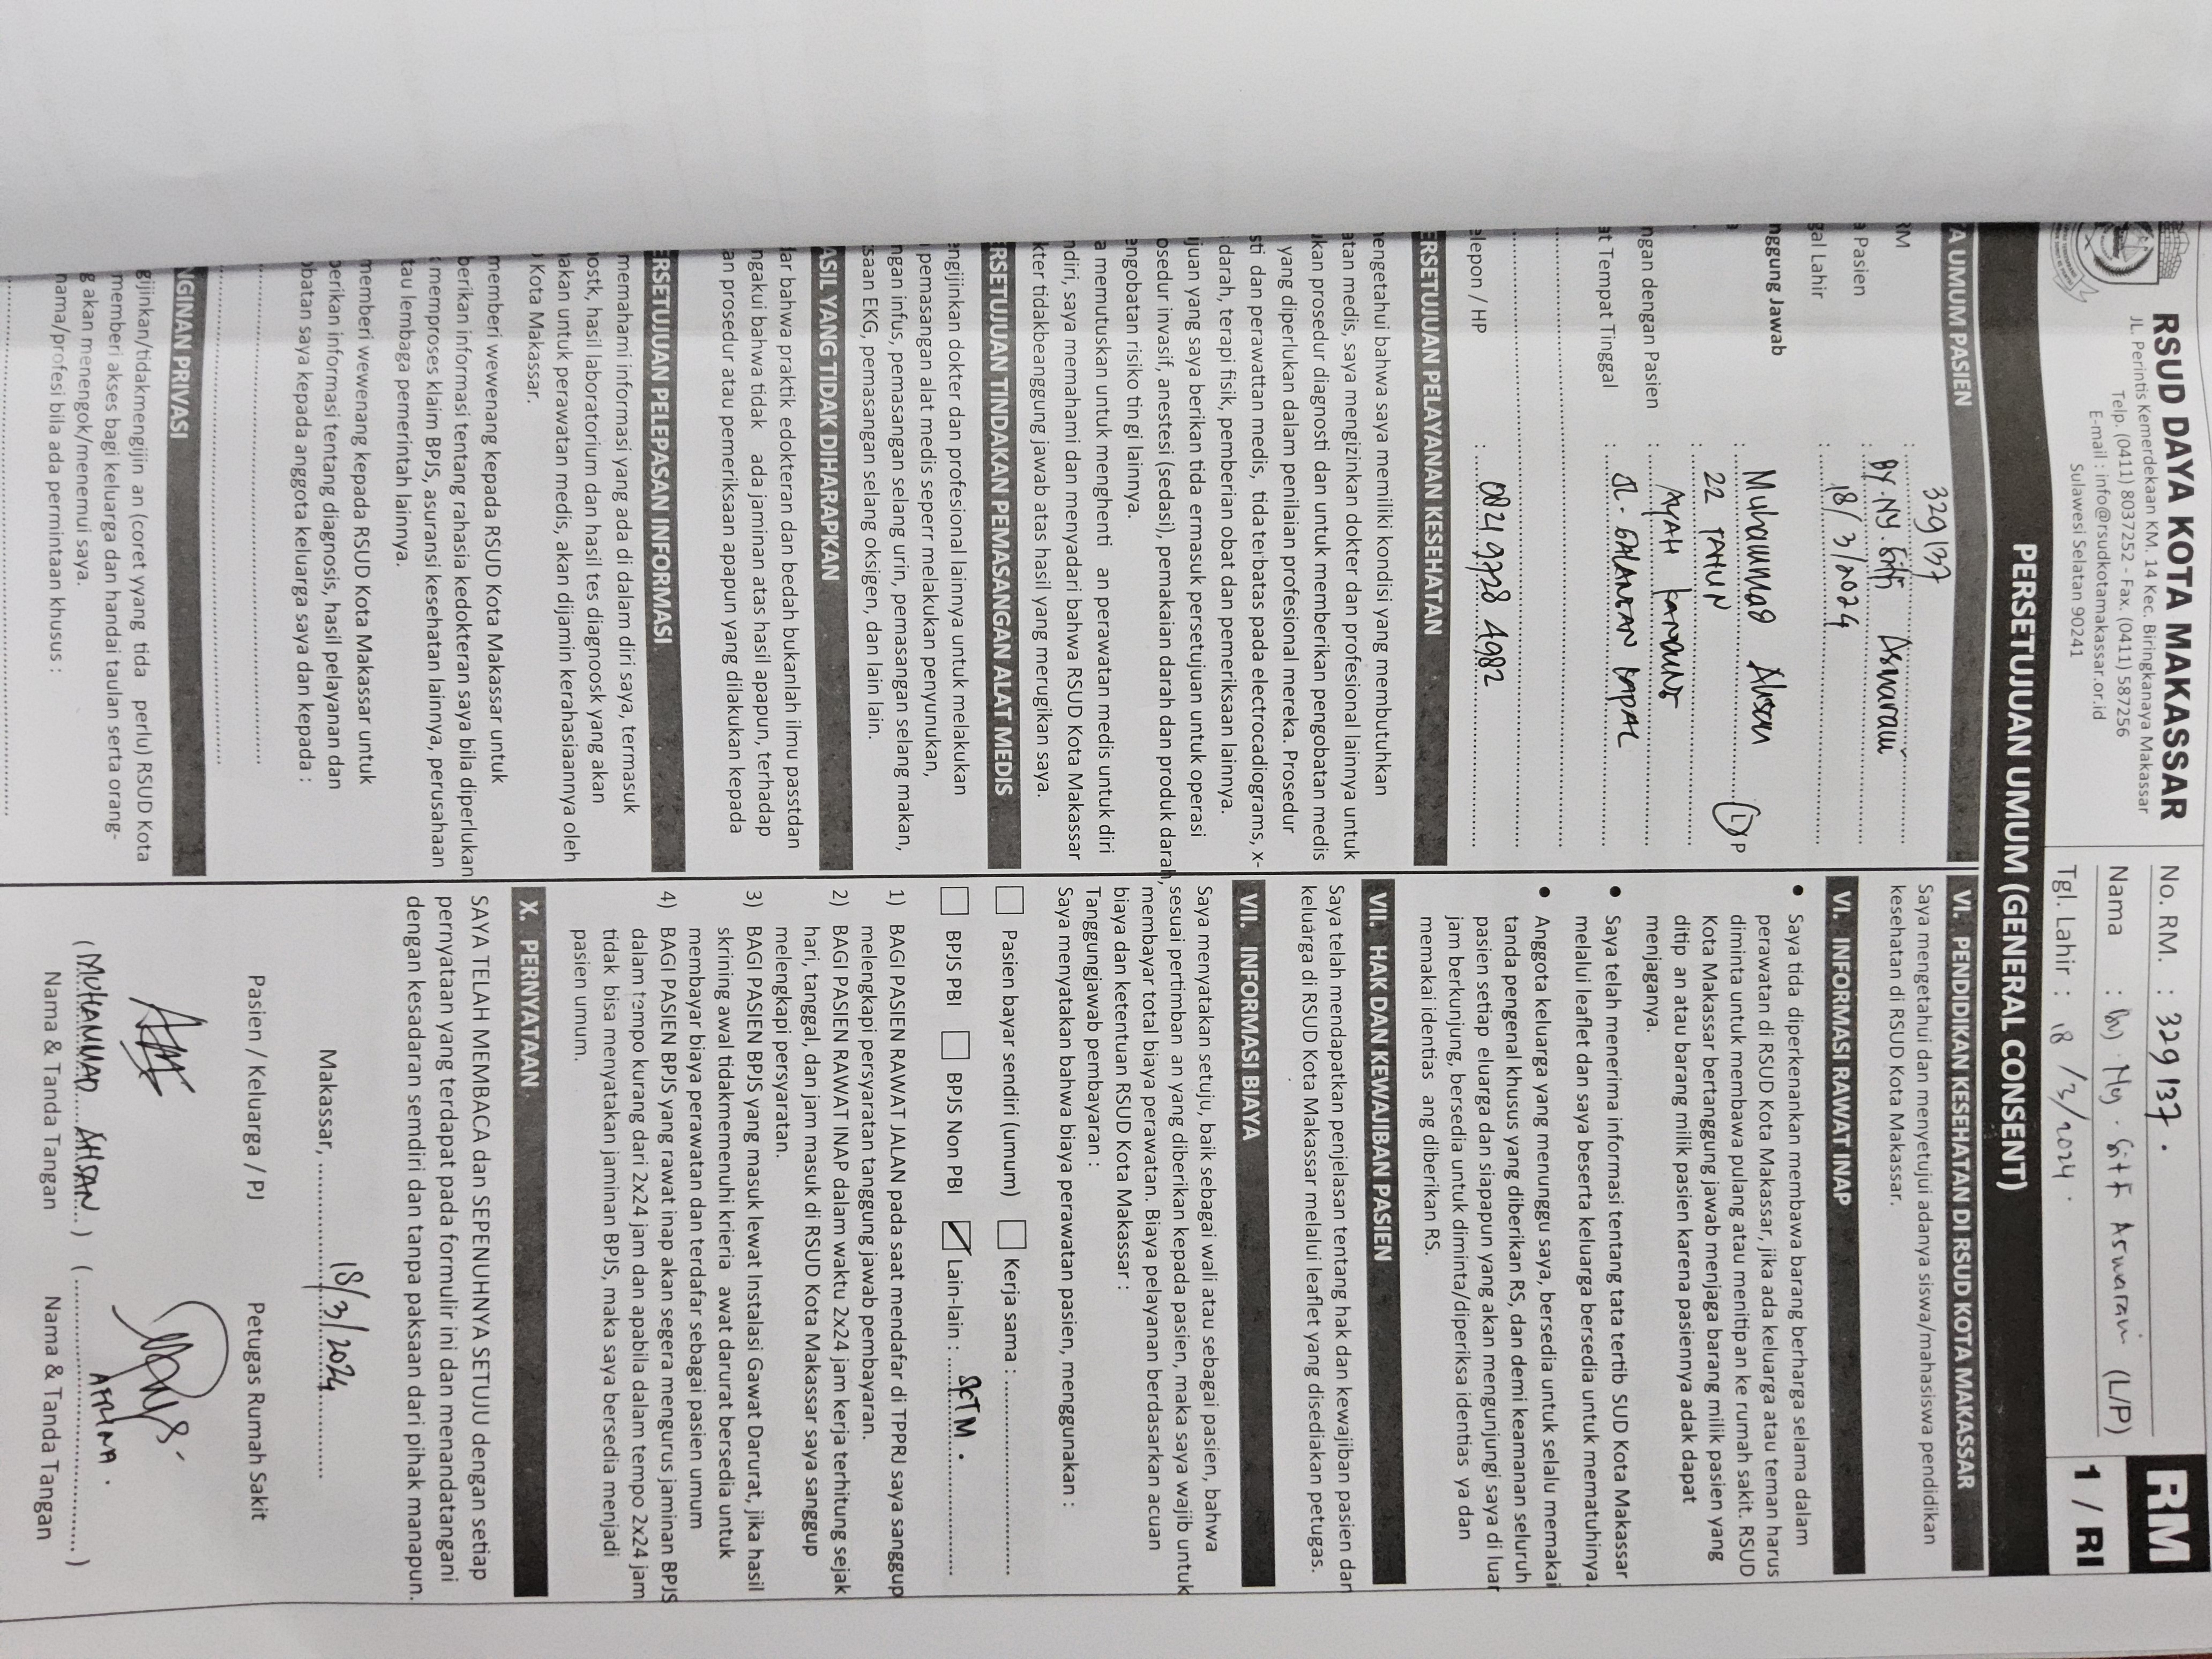 RSUD DAYA KOTA MAKASSAR
JL. Perintis Kemerdekaan KM. 14 Kec. Biringkanaya Makassar
Telp. (0411) 8037252 - Fax. (0411) 587256
E-mail : info@rsudkotamakassar.or.id
Sulawesi Selatan 90241
No. RM. : 329137.
Nama : By. Ny. Sitti Aswarani (L/P)
Tgl. Lahir : 18/3/2024.
RM
1 / RI
PERSETUJUAN UMUM (GENERAL CONSENT)
A UMUM PASIEN
RM : 329137
a Pasien : BY. NY. Sitti Aswarani
gal Lahir : 18/3/2024
nggung Jawab : Muhammad Ahsan L/P
: 22 TAHUN
ngan dengan Pasien : AYAH KANDUNG
at Tempat Tinggal : JL. GALANGAN KAPAL
elepon / HP : 0821 9728 4982
ERSETUJUAN PELAYANAN KESEHATAN
engetahui bahwa saya memiliki kondisi yang membutuhkan
atan medis, saya mengizinkan dokter dan profesional lainnya untuk
ukan prosedur diagnosti dan untuk memberikan pengobatan medis
yang diperlukan dalam penilaian profesional mereka. Prosedur
sti dan perawattan medis, tida terbatas pada electrocadiograms, x-
darah, terapi fisik, pemberian obat dan pemeriksaan lainnya.
ujuan yang saya berikan tida ermasuk persetujuan untuk operasi
osedur invasif, anestesi (sedasi), pemakaian darah dan produk darah,
engobatan risiko tin gi lainnya.
a memutuskan untuk menghenti an perawatan medis untuk diri
ndiri, saya memahami dan menyadari bahwa RSUD Kota Makassar
kter tidakbeanggung jawab atas hasil yang merugikan saya.
ERSETUJUAN TINDAKAN PEMASANGAN ALAT MEDIS
engijinkan dokter dan profesional lainnya untuk melakukan
pemasangan alat medis seperr melakukan penyunukan,
ngan infus, pemasangan selang urin, pemasangan selang makan,
saan EKG, pemasangan selang oksigen, dan lain lain.
ASIL YANG TIDAK DIHARAPKAN
ar bahwa praktik edokteran dan bedah bukanlah ilmu passtdan
ngakui bahwa tidak ada jaminan atas hasil apapun, terhadap
an prosedur atau pemeriksaan apapun yang dilakukan kepada
ERSETUJUAN PELEPASAN INFORMASI
memahami informasi yang ada di dalam diri saya, termasuk
nostk, hasil laboratorium dan hasil tes diagnoosk yang akan
nakan untuk perawatan medis, akan dijamin kerahasiaannya oleh
Kota Makassar.
memberi wewenang kepada RSUD Kota Makassar untuk
berikan informasi tentang rahasia kedokteran saya bila diperlukan
memproses klaim BPJS, asuransi kesehatan lainnya, perusahaan
tau lembaga pemerintah lainnya.
memberi wewenang kepada RSUD Kota Makassar untuk
berikan informasi tentang diagnosis, hasil pelayanan dan
obatan saya kepada anggota keluarga saya dan kepada :
NGINAN PRIVASI
gijinkan/tidakmengijin an (coret yyang tida perlu) RSUD Kota
memberi akses bagi keluarga dan handai taulan serta orang-
g akan menengok/menemui saya.
nama/profesi bila ada permintaan khusus :
VI. PENDIDIKAN KESEHATAN DI RSUD KOTA MAKASSAR
Saya mengetahui dan menyetujui adanya siswa/mahasiswa pendidikan
kesehatan di RSUD Kota Makassar.
VI. INFORMASI RAWAT INAP
• Saya tida diperkenankan membawa barang berharga selama dalam
perawatan di RSUD Kota Makassar, jika ada keluarga atau teman harus
diminta untuk membawa pulang atau menitip an ke rumah sakit. RSUD
Kota Makassar bertanggung jawab menjaga barang milik pasien yang
ditip an atau barang milik pasien karena pasiennya adak dapat
menjaganya.
• Saya telah menerima informasi tentang tata tertib SUD Kota Makassar
melalui leaflet dan saya beserta keluarga bersedia untuk mematuhinya.
• Anggota keluarga yang menunggu saya, bersedia untuk selalu memakai
tanda pengenal khusus yang diberikan RS, dan demi keamanan seluruh
pasien setiap eluarga dan siapapun yang akan mengunjungi saya di luar
jam berkunjung, bersedia untuk diminta/diperiksa identias ya dan
memakai identias ang diberikan RS.
VII. HAK DAN KEWAJIBAN PASIEN
Saya telah mendapatkan penjelasan tentang hak dan kewajiban pasien dan
keluarga di RSUD Kota Makassar melalui leaflet yang disediakan petugas.
VII. INFORMASI BIAYA
Saya menyatakan setuju, baik sebagai wali atau sebagai pasien, bahwa
sesuai pertimban an yang diberikan kepada pasien, maka saya wajib untuk
membayar total biaya perawatan. Biaya pelayanan berdasarkan acuan
biaya dan ketentuan RSUD Kota Makassar :
Tanggungjawab pembayaran :
Saya menyatakan bahwa biaya perawatan pasien, menggunakan :
Pasien bayar sendiri (umum) Kerja sama :
BPJS PBI BPJS Non PBI Lain-lain : SKTM.
1) BAGI PASIEN RAWAT JALAN pada saat mendafar di TPPRJ saya sanggup
melengkapi persyaratan tanggung jawab pembayaran.
2) BAGI PASIEN RAWAT INAP dalam waktu 2x24 jam kerja terhitung sejak
hari, tanggal, dan jam masuk di RSUD Kota Makassar saya sanggup
melengkapi persyaratan.
3) BAGI PASIEN BPJS yang masuk lewat Instalasi Gawat Darurat, jika hasil
skrining awal tidakmemenuhi krieria awat darurat bersedia untuk
membayar biaya perawatan dan terdafar sebagai pasien umum
4) BAGI PASIEN BPJS yang rawat inap akan segera mengurus jaminan BPJS
dalam tempo kurang dari 2x24 jam dan apabila dalam tempo 2x24 jam
tidak bisa menyatakan jaminan BPJS, maka saya bersedia menjadi
pasien umum.
X. PERNYATAAN
SAYA TELAH MEMBACA dan SEPENUHNYA SETUJU dengan setiap
pernyataan yang terdapat pada formulir ini dan menandatangani
dengan kesadaran semdiri dan tanpa paksaan dari pihak manapun.
Makassar, 18/3/2024
Pasien / Keluarga / PJ Petugas Rumah Sakit
(MUHAMMAD AHSAN) (AFRINA.)
Nama & Tanda Tangan Nama & Tanda Tangan